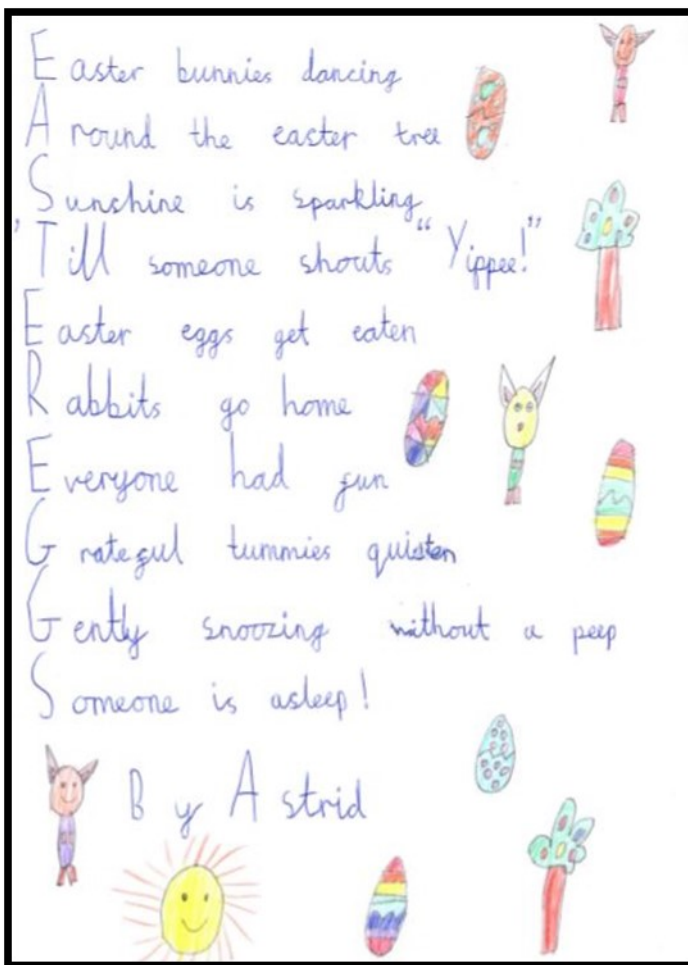 Easter bunnies dancing
Around the easter tree
Sunshine is sparkling
'Till someone shouts "Yippee!"
Easter eggs get eaten
Rabbits go home
Everyone had fun
Grateful tummies quieten
Gently snoozing without a peep
Someone is asleep!
By Astrid